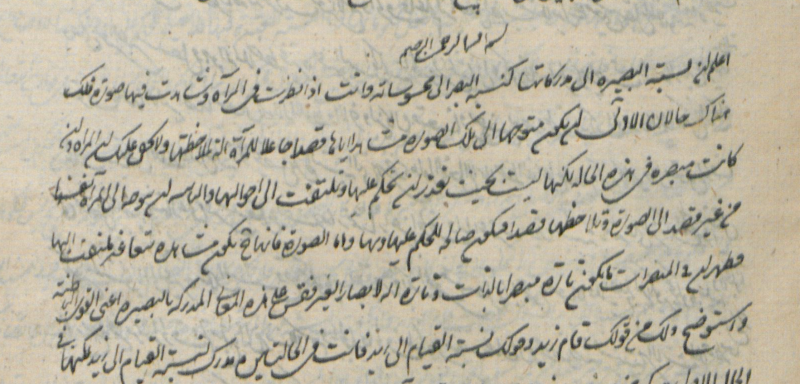 بسم الله الرحمن الرحيم
اعلم ان نسبة البصيرة الى مدركاتها كنسبة البصر الى محسوساته وانت اذا نظرت فى المرآة وشاهدت فيها صورة فلك
هناك حالتان الاولى ان يكون متوجها الى تلك الصورة مشاهدا اياها قصدا جاعلا للمرآة آلة لملاحظتها ولا يخفى عليك ان المرآة وان
كانت مبصرة فى هذه الحالة لكنها ليست بحيث تقدر ان تحكم عليها وتلتفت الى احوالها والثانية ان تتوجه الى المرآة نفسها
من غير قصد الى الصورة وتلاحظها قصدا فتكون صالحة للحكم عليها وبها واما الصورة فانها ح تكون مشاهدة تبعا غير ملتفت اليها
فظهر ان فى المبصرات ما يكون تارة مبصرا بالذات وتارة آلة لابصار الغير فقس على هذه المعانى المدركة بالبصيرة اعنى القوى الباطنة
واستوضح ذلك من قولك قام زيد وقولك نسبة القيام الى زيد فانت فى الحالتين مدرك لنسبة القيام الى زيد لكنها فى